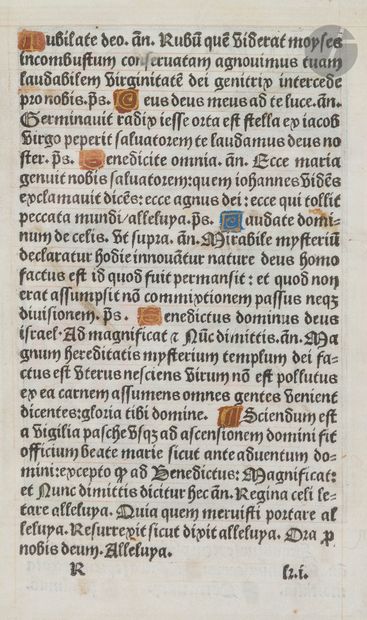 Iubilate deo. añ. Rubũ quẽ viderat moyses
incombustum conseruatam agnouimus tuam
laudabilem virginitatẽ dei genitrix intercede
pro nobis. p̃s. Deus deus meus ad te luce. añ.
Germinauit radix iesse orta est stella ex iacob
virgo peperit saluatorem te laudamus deus no
ster. p̃s. Benedicite omnia. añ. Ecce maria
genuit nobis saluatorem: quem iohannes vidẽs
exclamauit dicẽs: ecce agnus dei: ecce qui tollit
peccata mundi/ alleluya. p̃s. Laudate domi-
num de celis. vt supra. añ. Mirabile mysteriũ
declaratur hodie innouãtur nature deus homo
factus est id quod fuit permansit: et quod non
erat assumpsit nõ commixtionem passus neqz
diuisionem. p̃s. Benedictus dominus deus
israel. Ad magnificat ⁊ Nũc dimittis. añ. Ma
gnum hereditatis mysterium templum dei fa-
ctus est vterus nesciens virum nõ est pollutus
ex ea carnem assumens omnes gentes venient
dicentes: gloria tibi domine. ¶ Sciendum est
a vigilia pasche vsqz ad ascensionem domini fit
officium beate marie sicut ante aduentum do-
mini: excepto ꝙ ad Benedictus: Magnificat:
et Nunc dimittis dicitur hec añ. Regina celi le-
tare alleluya. Quia quem meruisti portare al
leluya. Resurrexit sicut dixit alleluya. Ora ꝓ
nobis deum. Alleluya.
R lz.i.